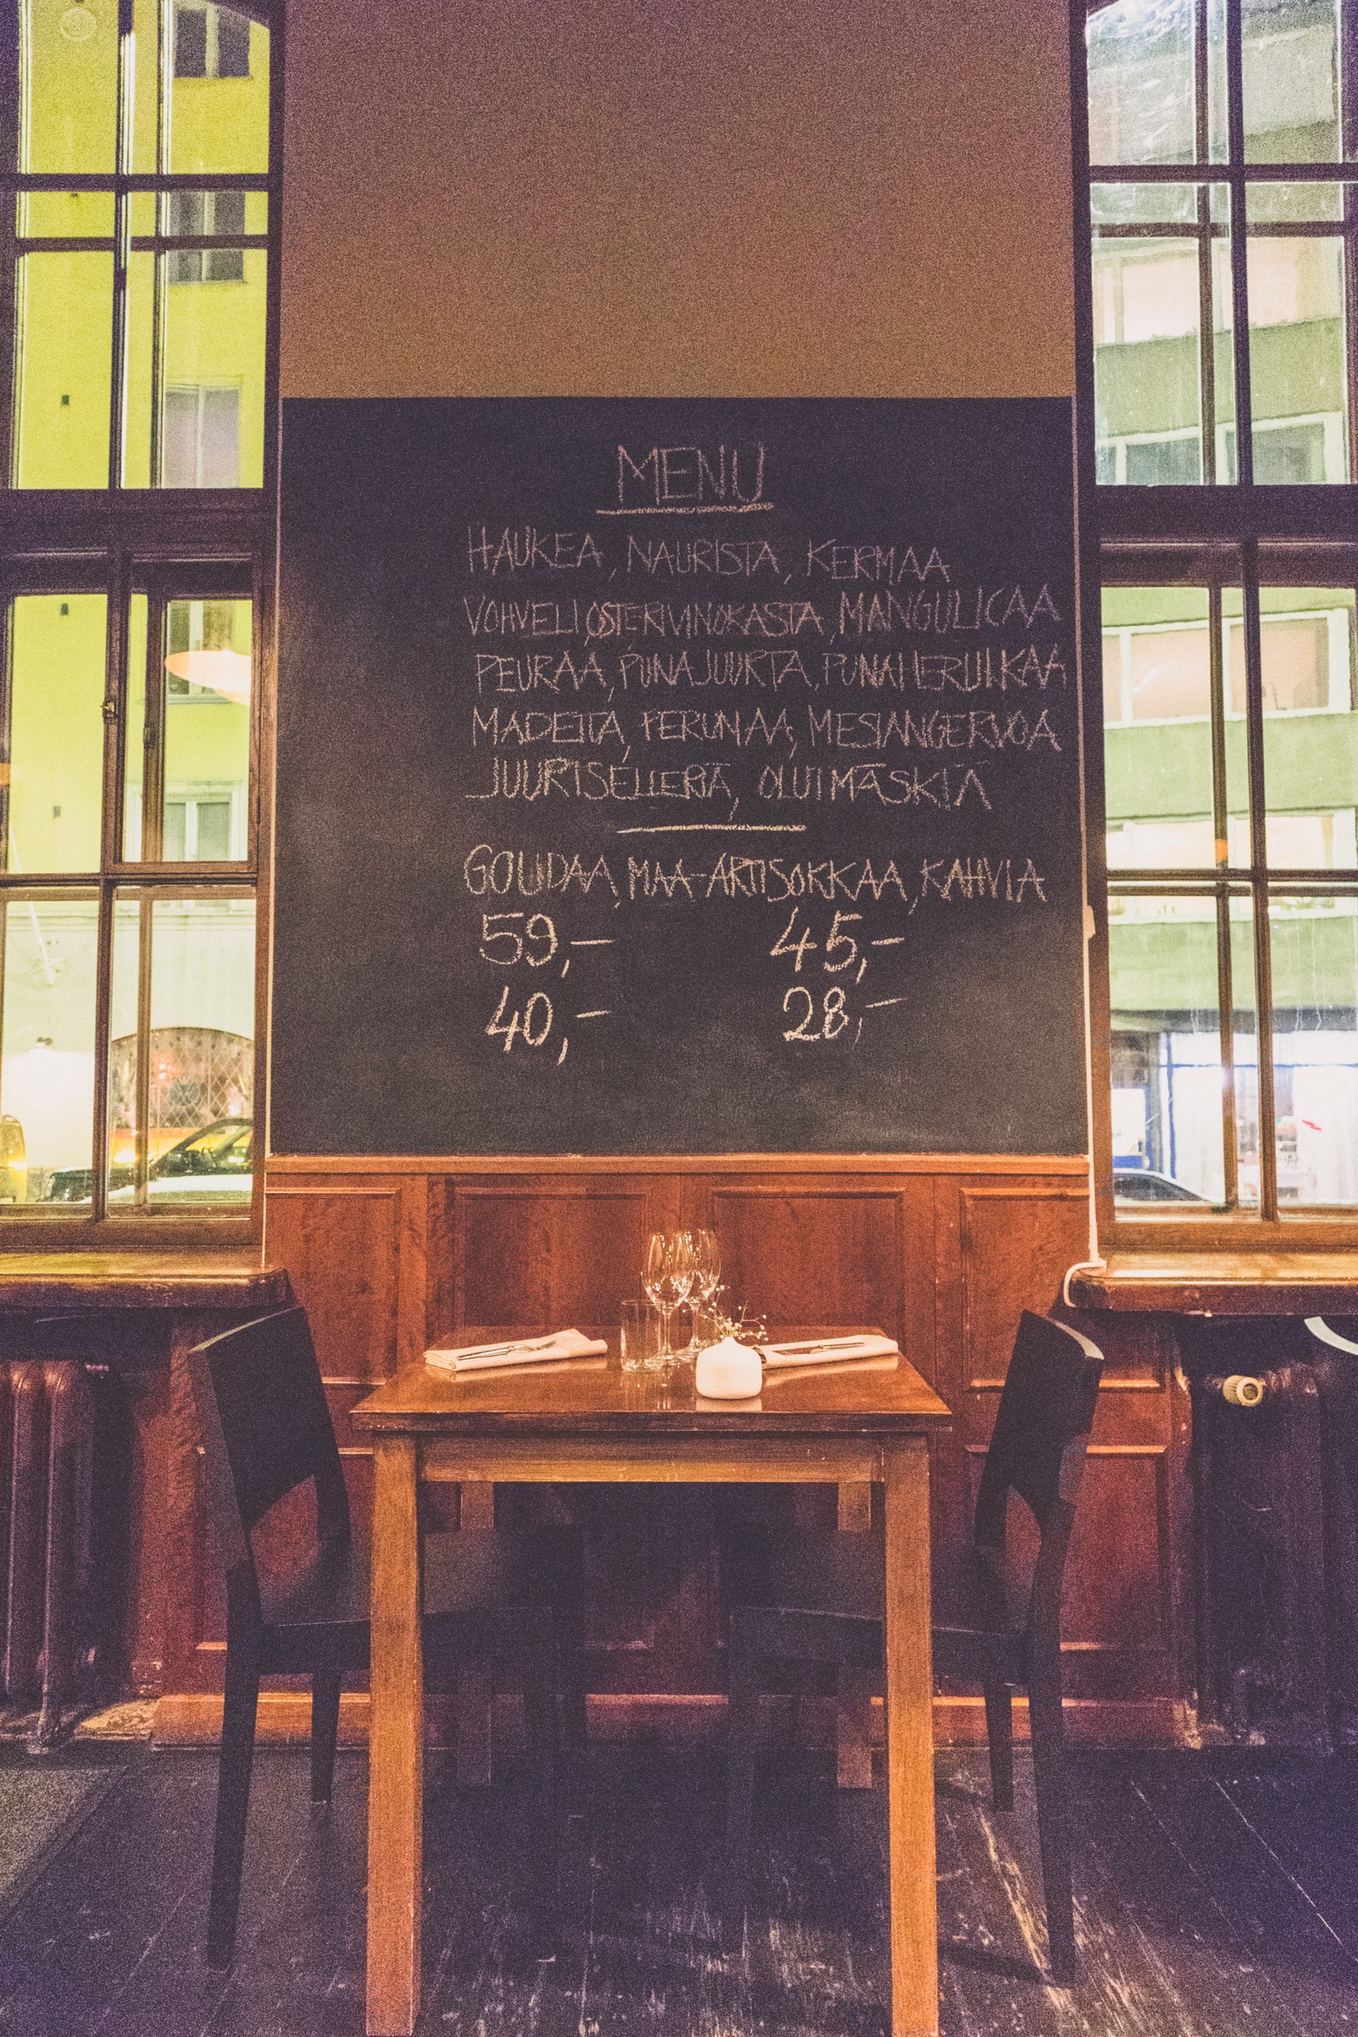 MENU
HAUKEA, NAURISTA, KERMAA
VOHVELI, OSTERIVINOKASTA, MANGULICAA
PEURAA, PUNAJUURTA, PUNAHERUKKAA
MADETTA, PERUNAA, MESIANGERVOA
JUURISELLERIÄ, OLUTMÄSKIÄ
GOUDAA, MAA-ARTISOKKAA, KAHVIA
59,- 45,-
40,- 28,-